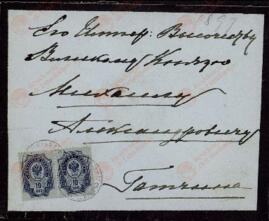 1897
Его Импер: Высочеству
Великому Князю
Михаилу
Александровичу
Гатчина
10 10